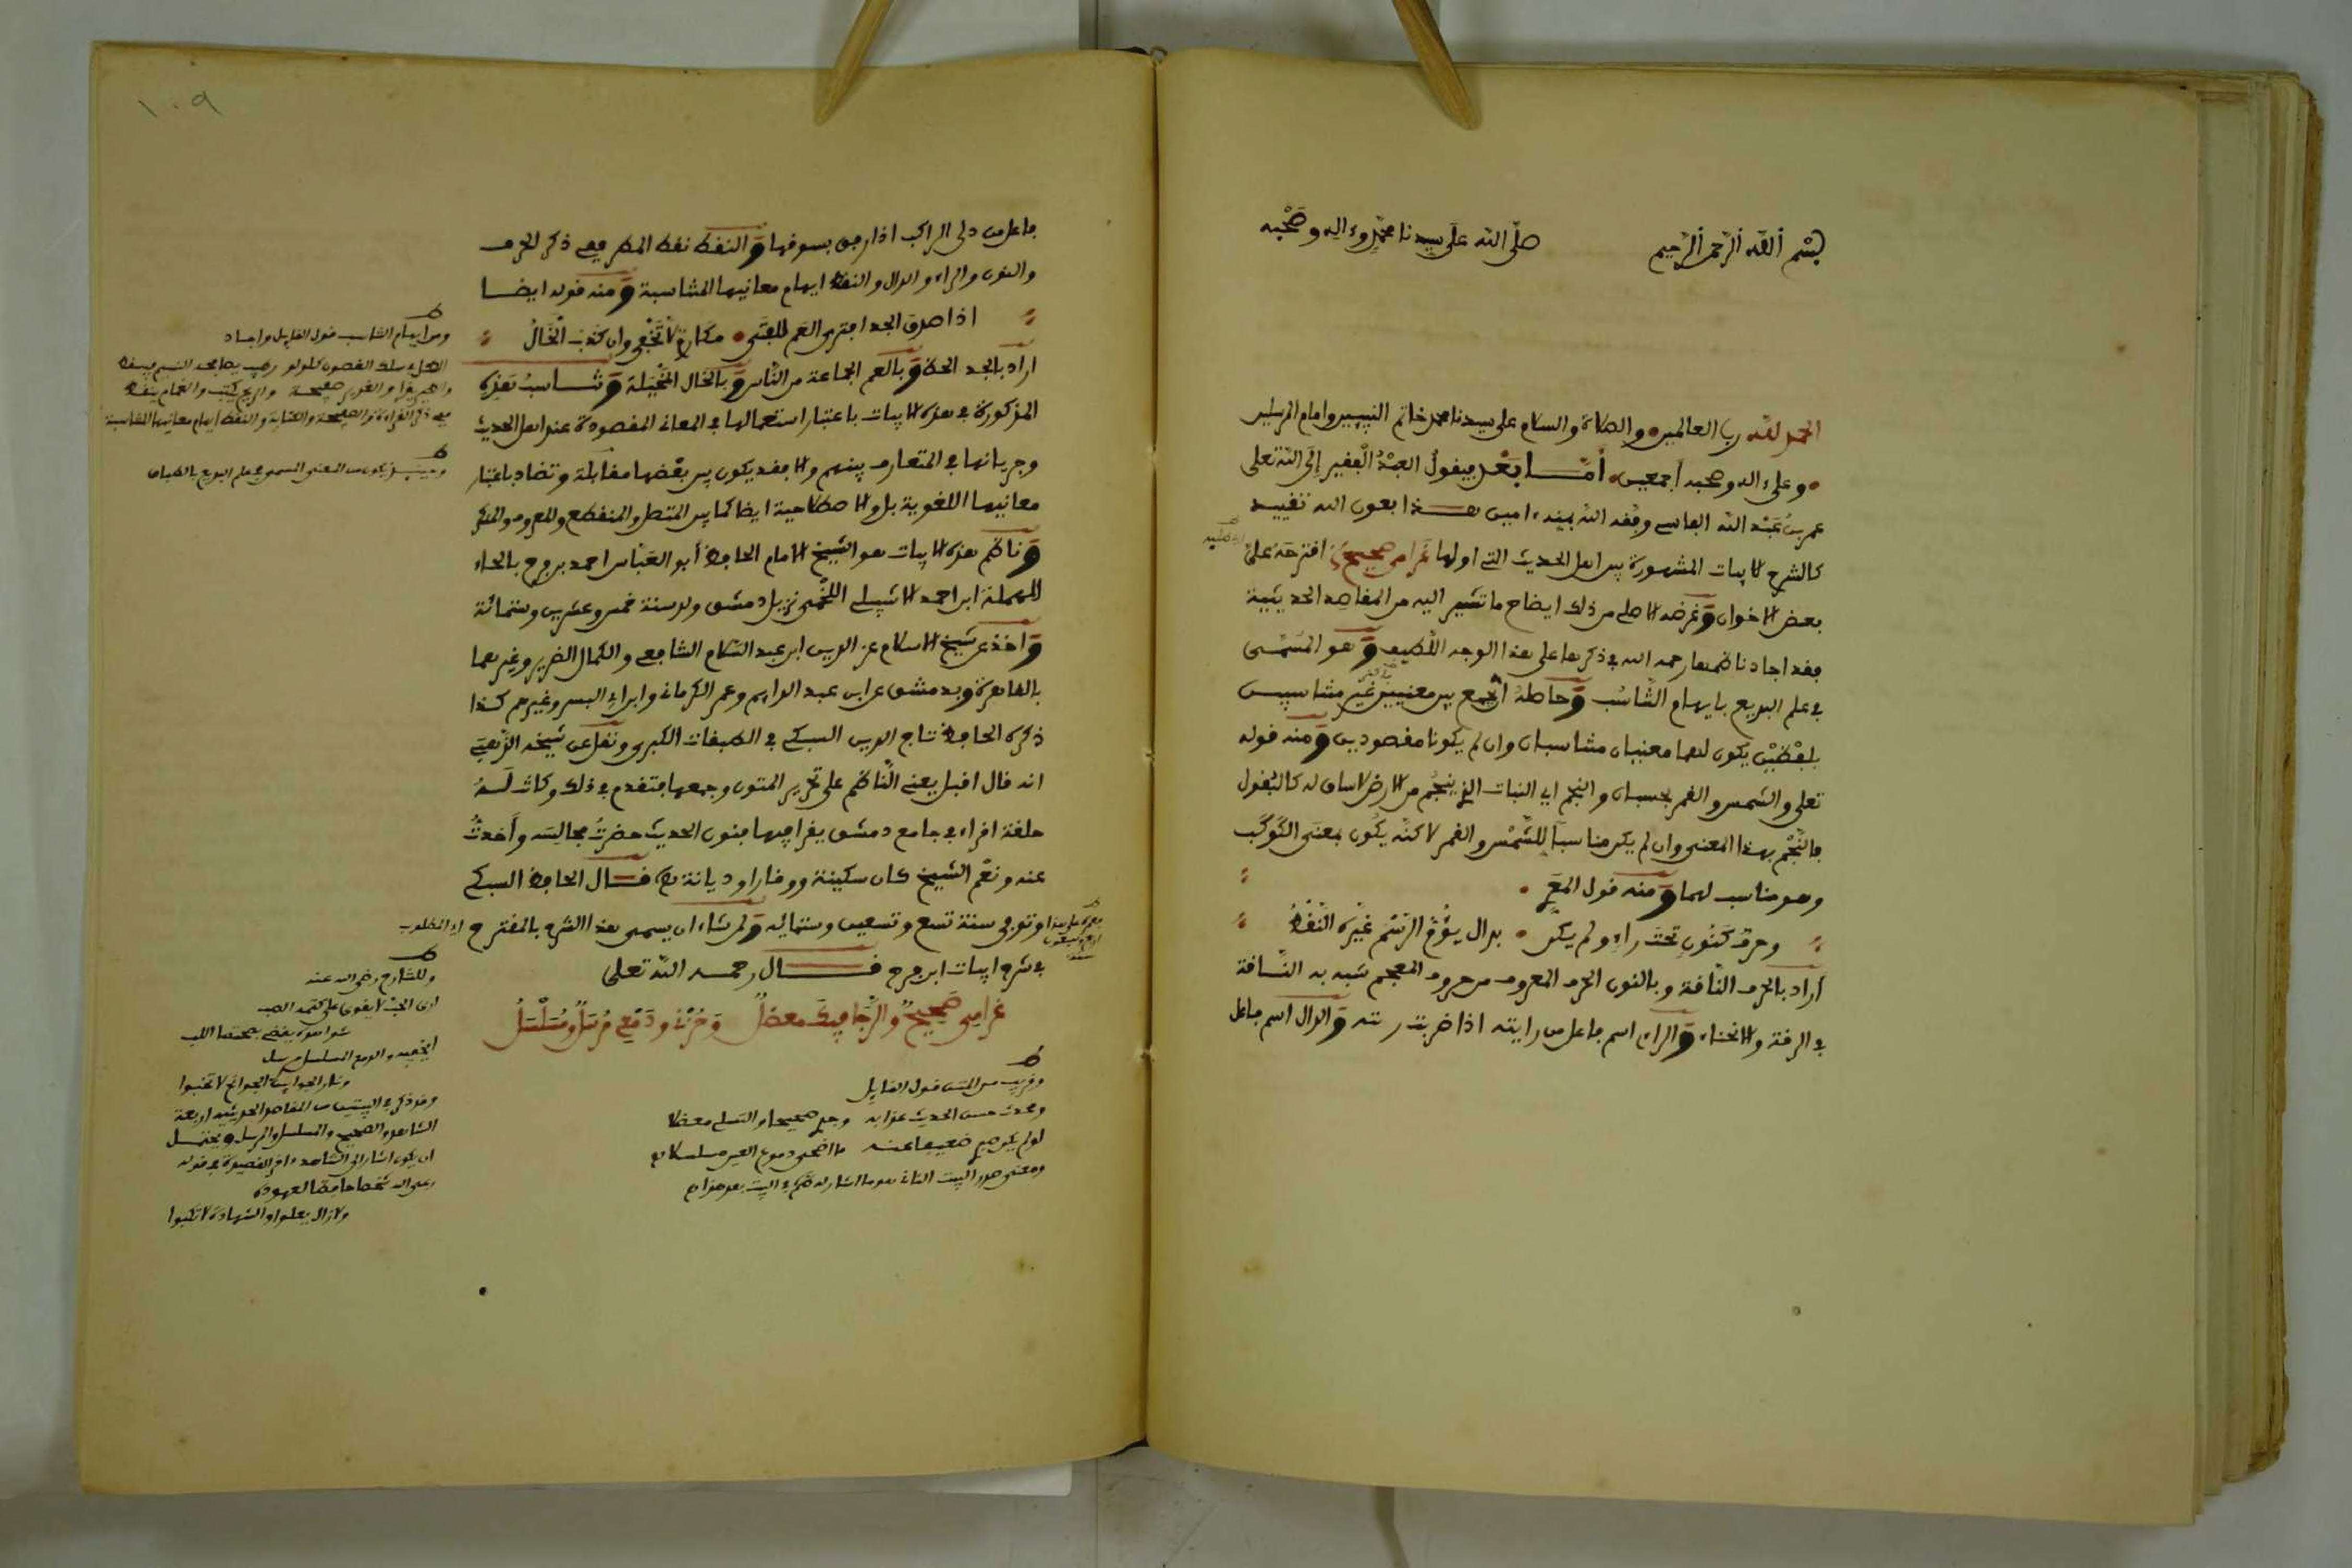 بسم الله الرحمن الرحيم صلى الله على سيدنا محمد وءاله وصحبه
الحمد لله رب العالمين والصلاة والسلام على سيدنا محمد خاتم النبيين وامام المرسلين
وعلى ءاله وصحبه أجمعين أما بعد فيقول العبد الفقير إلى الله تعلى
عمر بن عبد الله الفاسي وفقه الله بمنه ءامين هذا بعون الله تقييد
كالشرح للابيات المشهورة بين اهل الحديث التي اولها غرامي صحيح اقترحه علي
بعض الاخوان وغرضه الاصلي من ذلك ايضاح ما تشير اليه من المقاصد الحديثية
فقد اجاد ناظمها رحمه الله في ذكرها على هذا الوجه اللطيف وهو المسمى
في علم البديع بايهام التناسب وحاصله الجمع بين معنيين غير متناسبين
بلفظين يكون لهما معنيان متناسبان وان لم يكونا مقصودين ومنه قوله
تعلى والشمس والقمر بحسبان والنجم اي النبات الذي ينجم من الارض لا ساق له كالبقول
فالنجم بهذا المعنى وان لم يكن مناسبا للشمس والقمر لاكنه يكون بمعنى الكوكب
وهو مناسب لهما ومنه قول المعري
وحرف كنون تحت راء ولم يكن بدال يؤم الرسم غيره النقط
أراد بالحرف الناقة وبالنون الحرف المعروف من حروف المعجم شبه به الناقة
في الرقة والانحناء والراء اسم فاعل من رايته اذا ضربت رئته والدال اسم فاعل
١٠٩
فاعل من دلى الراكب اذا رفق بسوقها والنقط نقط المطر ففي ذكر الحرف
والنون والراء والدال والنقط ايهام معانيها المتناسبة ومنه قوله ايضا
اذا صدق الجد افترى العم للفتى مكارم لا تخفى وان كذب الخال
اراد بالجد الحظ وبالعم الجماعة من الناس وبالخال المخيلة وتناسب هذه
المذكورة في هذه الابيات باعتبار استعمالها في المعاني المقصودة عند اهل الحديث
وجريانها في المتعارف بينهم والا فقد يكون بين بعضها مقابلة وتضاد باعتبار
معانيها اللغوية بل والاصطلاحية ايضا كما بين المتصل والمنقطع والمعروف والمنكر
وناظم هذه الابيات هو الشيخ الامام الحافظ أبو العباس احمد بن فرح بالحاء
المهملة ابن احمد الاشبيلي اللخمي نزيل دمشق ولد سنة خمس وعشرين وستمائة
واخذ عن شيخ الاسلام عز الدين ابن عبد السلام الشافعي والكمال الضرير وغيرهما
بالقاهرة وبدمشق عن ابن عبد الدايم وعمر الكرماني وابن ابي اليسر وغيرهم كذا
ذكره الحافظ تاج الدين السبكي في الطبقات الكبرى ونقل عن شيخه الذهبي
انه قال اقبل يعني الناظم على تحرير المتون وجمعها فتقدم في ذلك وكانت له
حلقة اقراء في جامع دمشق يقرأ فيها فنون الحديث حضرت مجالسه وأخذت
عنه ونعم الشيخ كان سكينة ووقارا وديانة قال الحافظ السبكي
وتوفي سنة تسع وتسعين وستمائه ولمن شاء ان يسمي هذا الشرح بالمقترح
في شرح ابيات ابن فرح قال رحمه الله تعلى
غرامي صحيح والرجا فيك معضل وحزني ودمعي مرسل ومسلسل
ومن ايهام التناسب قول القايل واجاد
الطل في سلك الغصون كلؤلؤ رطب يصافحه النسيم فيسقط
والطير يقرأ والغدير صحيفة والريح يكتب والغمام ينقط
ففي ذكر القراءة والصحيفة والكتابة والنقط ايهام معانيها المتناسبة
وحينئذ يكون من المعنى المسمى في علم البديع بالطباق
اي المطلوب
وللشارح رضي الله عنه
وقد ذكر في البيتين من المقاصد الحديثية اربعة
الشاهد والصحيح والمسلسل والمرسل ويحتمل
ان يكون اشار الى الشاهد ءاخر القصيدة في قوله
وقريب من المتن قول القايل
ومحدث حسن الحديث
لو لم يكن صبري ضعيفا عنه ما اضحى دموع العين مسلسلا